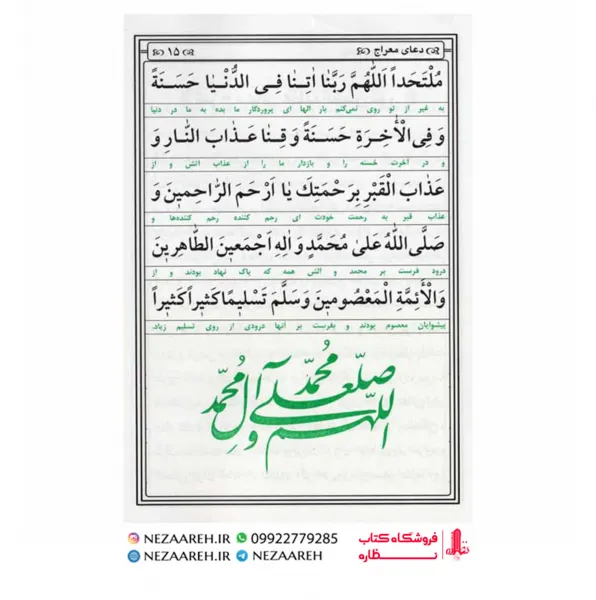 دعای معراج ۱۵
مُلْتَحَداً اَللّٰهُمَّ رَبَّنٰا اٰتِنٰا فِی الدُّنْیٰا حَسَنَةً
به غیر از تو روی نمی‌کنم بار الها ای پروردگار ما بده به ما در دنیا
وَ فِی الْاٰخِرَةِ حَسَنَةً وَ قِنٰا عَذٰابَ النّٰارِ وَ
و در آخرت حسنه را و بازدار ما را از عذاب اتش و از
عَذٰابَ الْقَبْرِ بِرَحْمَتِكَ یٰا اَرْحَمَ الرّٰاحِمینَ وَ
عذاب قبر به رحمت خودت ای رحم کننده رحم کننده‌ها و
صَلَّی اللّٰهُ عَلیٰ مُحَمَّدٍ وَ اٰلِهِ اَجْمَعینَ الطّٰاهِرینَ
درود فرست بر محمد و الش همه که پاک نهاد بودند و از
وَالْاَئِمَّةِ الْمَعْصُومینَ وَ سَلَّمَ تَسْلیمًا کَثیراً کَثیراً
پیشوایان معصوم بودند و بفرست بر آنها درودی از روی تسلیم زیاد.
اللّهم صلّ علی محمّد و آل محمّد
فروشگاه کتاب
نظاره
NEZAAREH.IR 09922779285
NEZAAREH.IR NEZAAREH